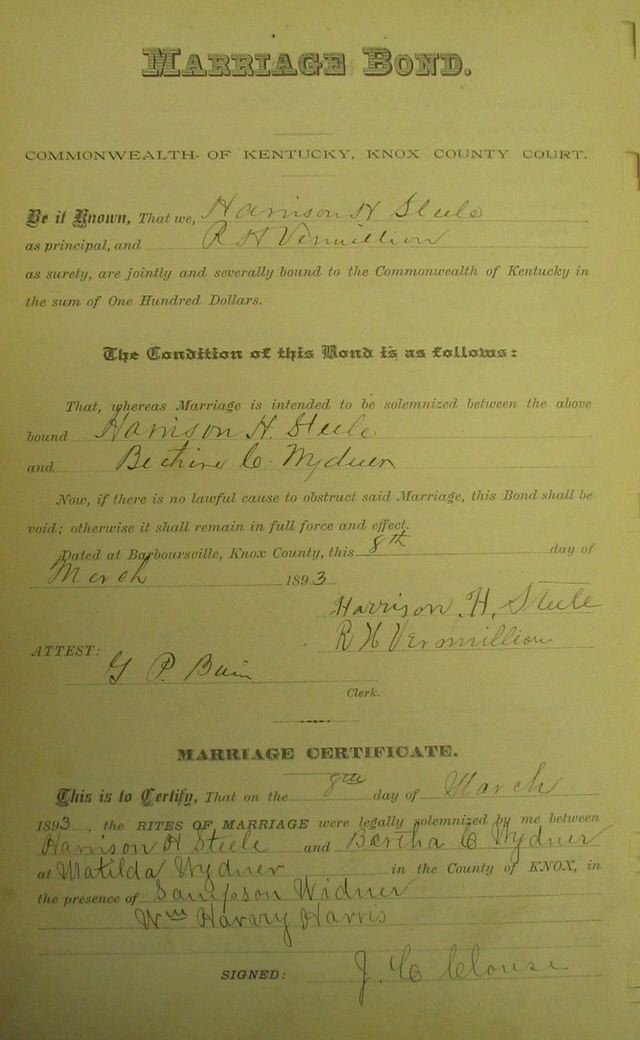 MARRIAGE BOND.
COMMONWEALTH OF KENTUCKY, KNOX COUNTY COURT.
Be it Known, That we, Harrison H Steele
as principal, and R H Vermillion
as surety, are jointly and severally bound to the Commonwealth of Kentucky in
the sum of One Hundred Dollars.
The Condition of this Bond is as follows:
That, whereas Marriage is intended to be solemnized between the above
bound Harrison H. Steele
and C. Wydner
Now, if there is no lawful cause to obstruct said Marriage, this Bond shall be
void; otherwise it shall remain in full force and effect.
Dated at Barboursville, Knox County, this 8th day of
March 1893
Harrison, H, Steele
R H Vermillion
ATTEST:
G P. Bain
Clerk.
MARRIAGE CERTIFICATE.
This is to Certify, That on the 8th day of March
1893, the RITES OF MARRIAGE were legally solemnized by me between
Harrison H Steele and Bertha C Wydner
at Matilda Wydner in the County of KNOX, in
the presence of Sampson Widner
Wm Harvy Harris
SIGNED: J. C Clouse